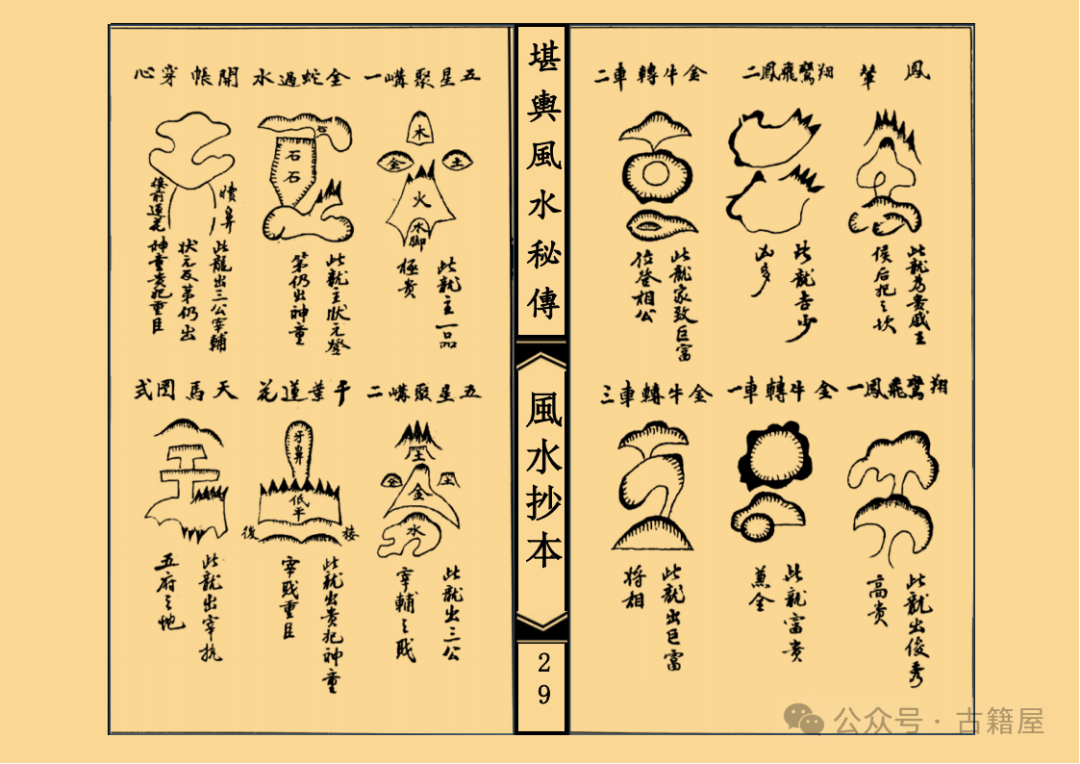 鳳輦
此龍為貴戚王
侯后妃之坎
翔鸞飛鳳二
此龍吉少
凶多
金牛轉車二
此龍家致巨富
位登相公
翔鸞飛鳳一
此龍出俊秀
高貴
金牛轉車一
此龍富貴
兼全
金牛轉車三
此龍出巨富
将相
堪輿風水秘傳
風水抄本
29
五星聚嶙一
木
金
土
火
水
脚
此龍主一品
極貴
金蛇過水
石
石
石
此龍主狀元登
第仍出神童
開帳穿心
情鼻
後前蓮花
此龍出三公宰輔
状元及第仍出
神童貴妃重臣
五星聚嶙二
土
金
土
金
水
此龍出三公
宰輔之職
千葉蓮花
牙鼻
低平
後
接
此龍出貴妃神童
宰職重臣
天馬囝式
此龍出宰执
五府之地
公众号·古籍屋